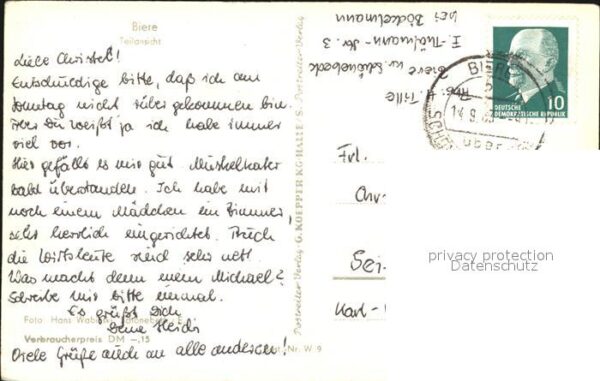 Biere
Teilansicht
Liebe Christel!
Entschuldige bitte, daß ich am
Sonntag nicht rüber gekommen bin.
Aber Du weißt ja ich habe immer
viel vor.
Hier gefällt es mir gut. Muskelkater
bald überstanden. Ich habe mit
noch einem Mädchen ein Zimmer,
sehr herrlich eingerichtet. Auch
die Wirtsleute sind sehr nett.
Was macht denn mein Michael?
Schreibe mir bitte einmal.
Es grüßt Dich
Deine Heidi
Foto: Hans
Verbraucherpreis DM -,15
Viele Grüße auch an alle anderen!
Nr. W 9
Postreiter-Verlag G. KOEPPTER KG HALLE / S. Postreiter-Verlag
Abs: Tille
Biere Kr. Schönebeck
E.-Thälmann-Str. 3
bei Bödeckmann
DEUTSCHE
DEMOKRATISCHE REPUBLIK
10
BIERE
Frl.
Chr-
Karl-
privacy protection
Datenschutz